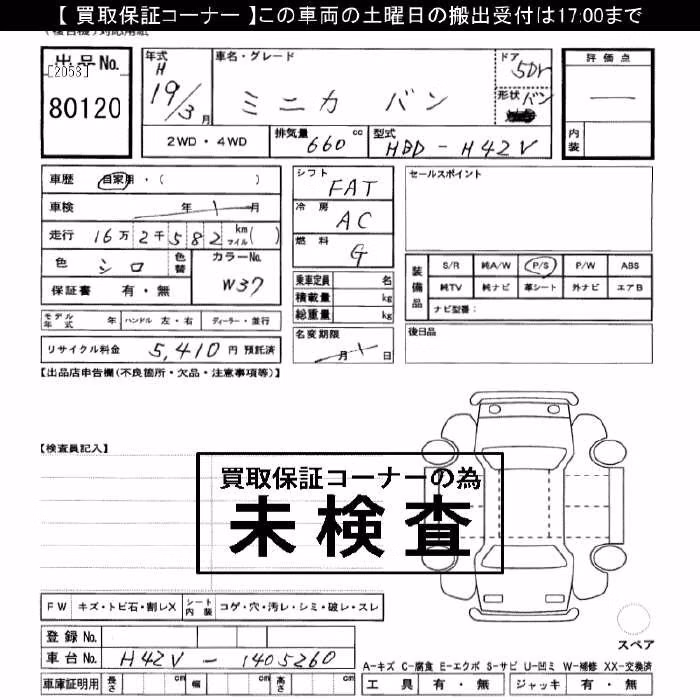 【 買取保証コーナー 】この車両の土曜日の搬出受付は17:00まで
出品No.
[2053]
80120
年式
H
19/3月
車名・グレード
ミニカ バン
ドア
5Dr
形状 バン
評価点
内装
2WD・4WD
排気量 660 cc
型式 HBD-H42V
車歴 自家用・( )
車検 年 月
走行 16万2千582 km マイル( )
色 シロ 色替
カラーNo. W37
保証書 有・無
シフト FAT
冷房 AC
燃料 G
乗車定員 名
積載量 kg
総重量 kg
名変期限
月 日
セールスポイント
装備品
S/R 純A/W P/S P/W ABS
純TV 純ナビ 革シート 外ナビ エアB
ナビ型番：
後日品
モデル年式 年 ハンドル 左・右 ディーラー・並行
リサイクル料金 5,410 円 預託済
【出品店申告欄(不良箇所・欠品・注意事項等)】
【検査員記入】
買取保証コーナーの為
未検査
FW キズ・トビ石・割レX シート内装 コゲ・穴・汚レ・シミ・破レ・スレ
登録No.
車台No. H42V-1405260
車庫証明用 長さ cm 幅 cm 高さ cm
スペア
A-キズ C-腐食 E-エクボ S-サビ U-凹ミ W-補修 XX-交換済
工具 有・無 ジャッキ 有・無